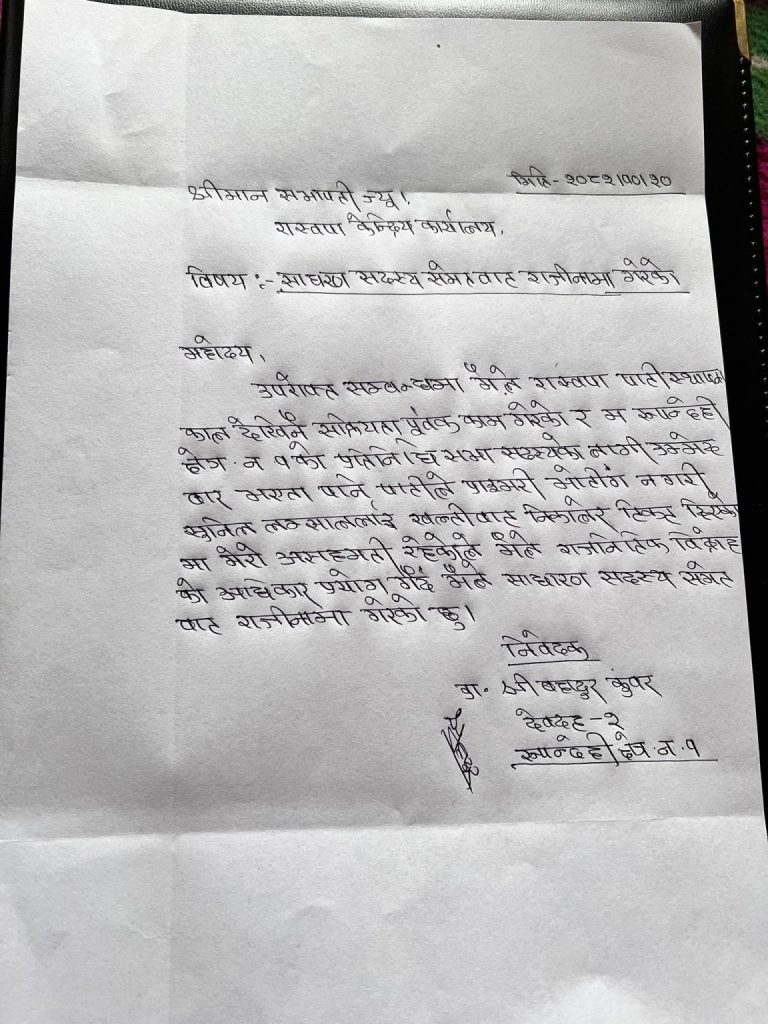 मिति - २०८२।१०।२०
श्रीमान सभापती ज्यू।
रास्वपा केन्द्रिय कार्यालय,
विषय :- साधारण सदस्य समेत वाट राजीनामा गरेको
महोदय,
उपरोक्त सम्वन्धमा मैले रास्वपा पार्टी स्थापना
काल देखिनै सक्रियता पूर्वक काम गरेको र म रूपन्देही
क्षेत्र न १ को प्रतिनिधि सभा सदस्यका लागी उम्मेद
वार भएता पनि पार्टीले प्राइमरी भोटींग नगरी
सुनिल लम्साललाई खल्तीवाट निकालेर टिकट दिएको
मा मेरो असहमती रहेकोले मैले राजनितिक विद्रोह
को अधिकार प्रयोग गर्दै मैले साधारण सदस्य समेत
वाट राजीनामा गरेको छु।
निवेदक
श्री बहादुर कुंवर
देवदह - २
रूपन्देही क्षेत्र न. १